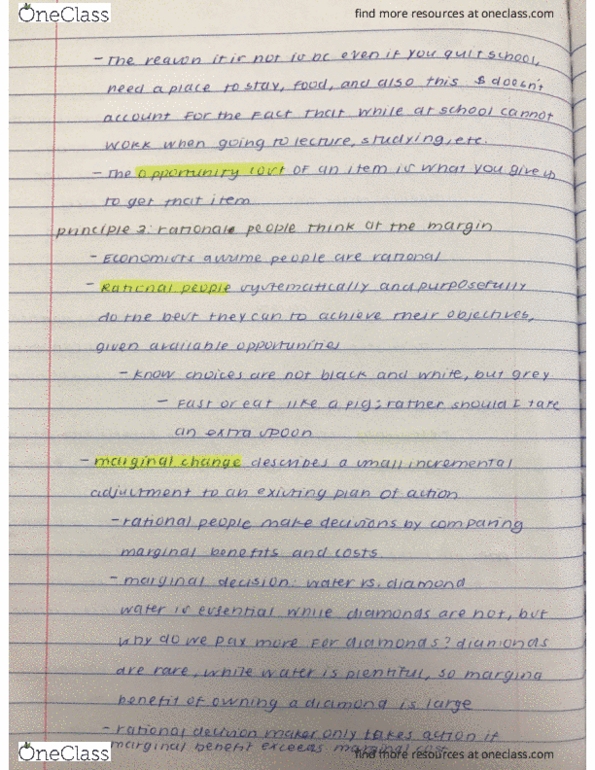 OneClass
find more resources at oneclass.com
- The reason it is not is bc even if you quit school,
need a place to stay, food, and also this $ doesn't
account for the fact that while at school cannot
work when going to lecture, studying, etc.
- The opportunity cost of an item is what you give up
to get that item
principle 3: rational people think at the margin
- Economists assume people are rational
- Rational people systematically and purposefully
do the best they can to achieve their objectives,
given available opportunities
- know choices are not black and white, but grey
- Fast or eat like a pig; rather should I take
an extra spoon
- marginal change describes a small incremental
adjustment to an existing plan of action
- rational people make decisions by comparing
marginal benefits and costs.
- marginal decision: water vs. diamond
water is essential while diamonds are not, but
why do we pay more for diamonds? diamonds
are rare, while water is plentiful, so margina
benefit of owning a diamond is large
- rational decision maker only takes action if
marginal benefit exceeds marginal cost
OneClass
find more resources at oneclass.com